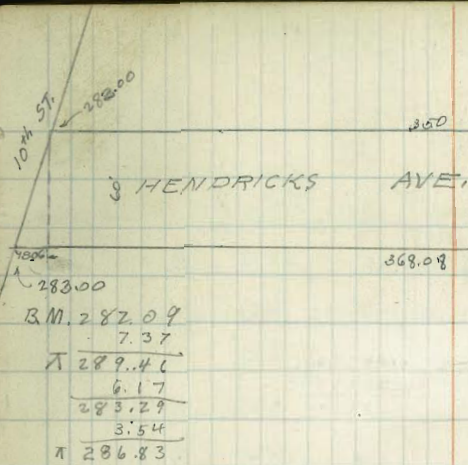 10th ST.
282.00
350
HENDRICKS AVE.
368.08
283.00
B.M. 282.09
7.37
⊼ 289.46
6.17
283.29
3.54
⊼ 286.83